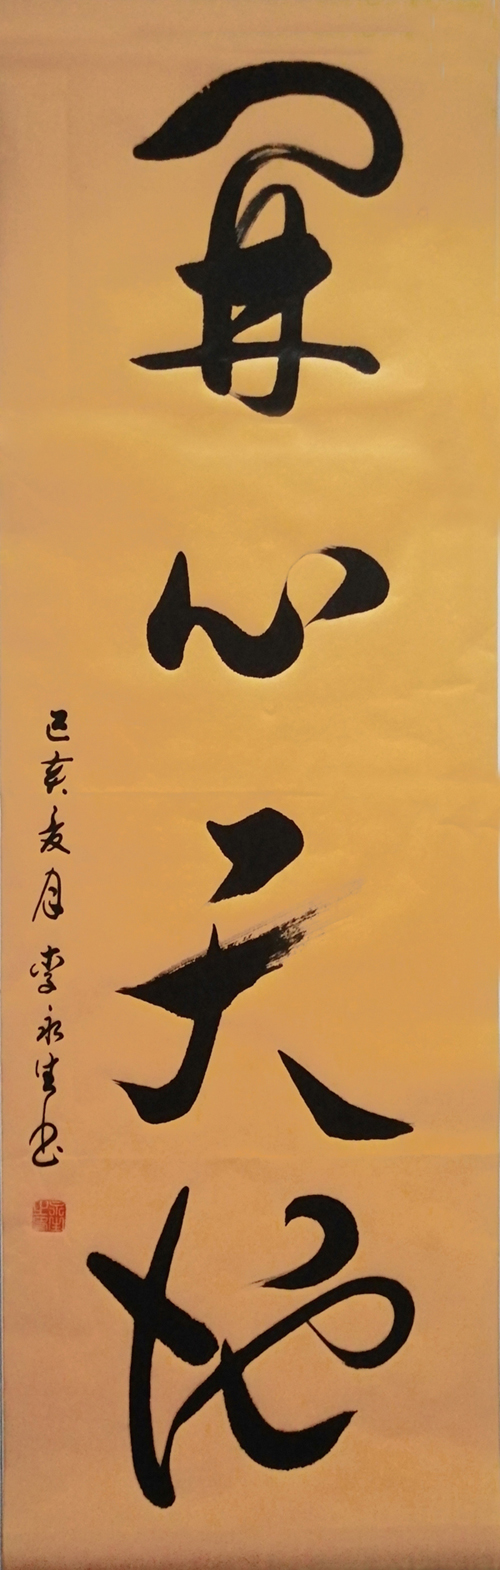 開心天地
己亥夏月李永生书